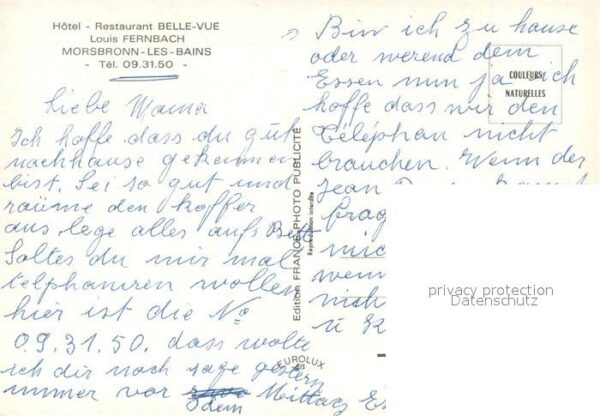 Hôtel - Restaurant BELLE-VUE
Louis FERNBACH
MORSBRONN-LES-BAINS
- Tél. 09.31.50 -
Liebe Mama
Ich hoffe dass du gut
nachhause gekommen
bist. Sei so gut und
raüme den Koffer
aus lege alles aufs Bett
Soltes du mir mal
telphonieren wollen
hier ist die No
09.31.50. dass wolte
ich dir noch sage gestern
immer vor dem Mittag E
Bin ich zu hause
oder werend dem
Essen nun ja ich
hoffe dass wir den
Téléphon nicht
brauchen. Wenn der
Jean
frag
mic
wenn
nich
u
COULEURS
NATURELLES
Edition FRANCE-PHOTO PUBLICITÉ
Reproduction interdite
EUROLUX
privacy protection
Datenschutz